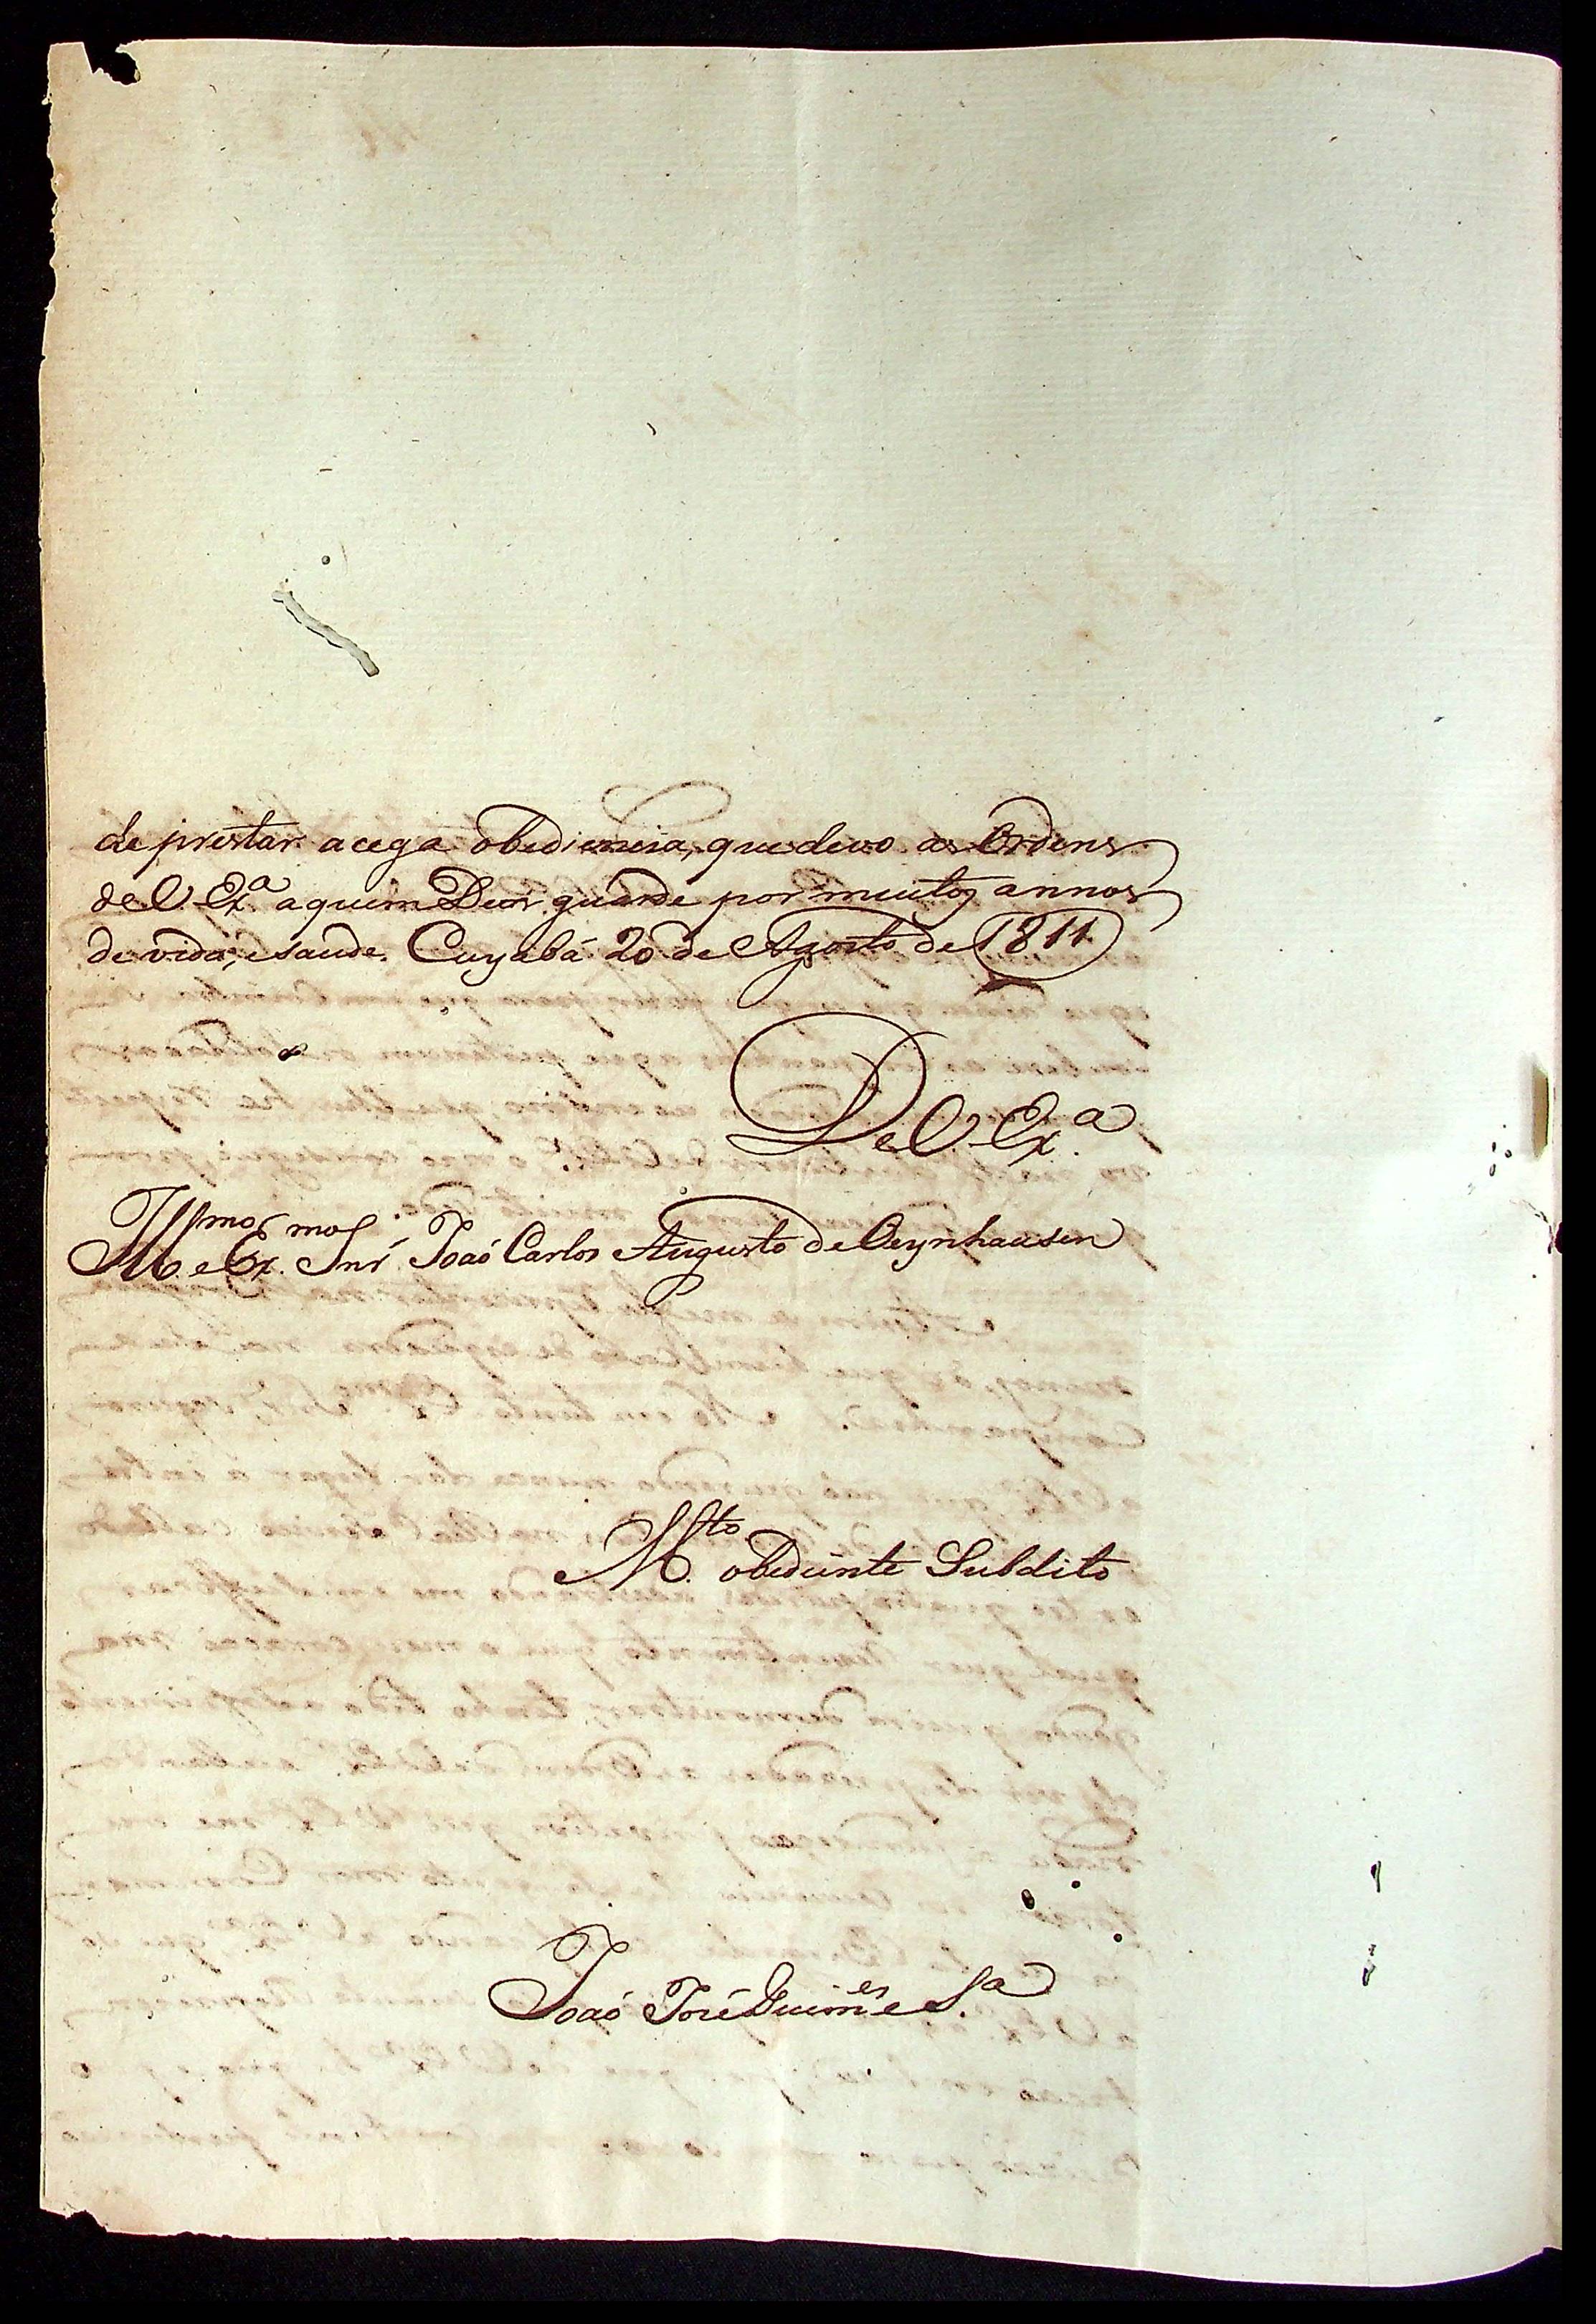 de prestar a cega obediencia, que devo as Ordens
de V. Ex.ª a quem Deos guarde por muitos annos
de vida, e saude. Cuyabá 20 de Agosto de 1811
De V. Ex.ª
Ill.mo e Ex.mo Snr. João Carlos Augusto de Oeynhausen
M.to obediente Subdito
João José Guim.es e S.ª